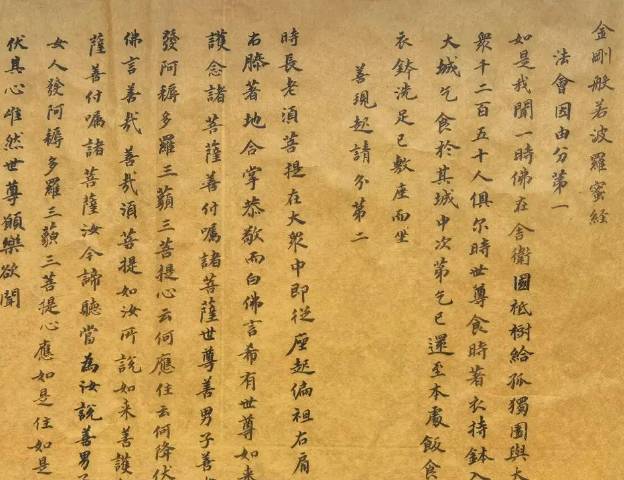 金剛般若波羅蜜経
法會因由分第一
如是我聞一時佛在舍衛國祗樹給孤獨園與大
衆千二百五十人俱尔時世尊食時著衣持鉢入
大城乞食於其城中次第乞已還至本處飯食
衣鉢洗足已敷座而坐
善現起請分第二
時長老須菩提在大衆中即從座起偏袒右肩
右膝著地合掌恭敬而白佛言希有世尊如来
護念諸菩薩善付囑諸菩薩世尊善男子善
發阿耨多羅三藐三菩提心云何應住云何降伏
佛言善哉善哉須菩提如汝所說如来善護
薩善付囑諸菩薩汝今諦聽當為汝說善男
女人發阿耨多羅三藐三菩提心應如是住如是
伏其心唯然世尊願樂欲聞